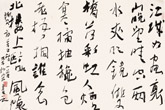 江城如畫裏
山晚望晴空兩
水夾明鏡雙
橋落彩虹人煙
寒橘柚秋色
老梧桐誰念
北樓上臨風懷